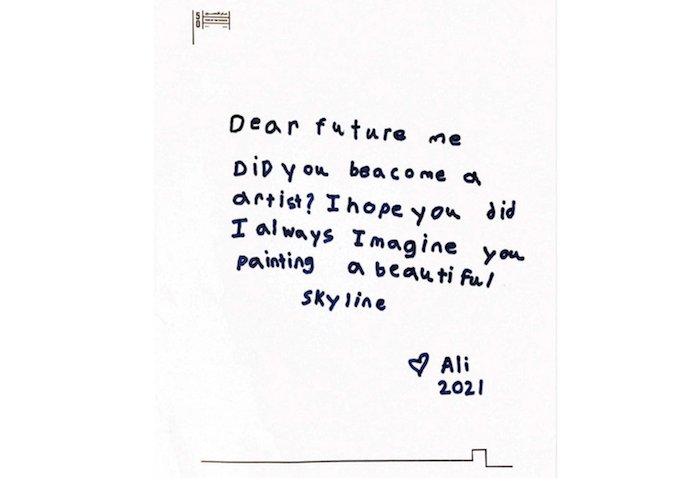 50
Dear future me
DiD you beacome a
artist? I hope you did
I always Imagine you
painting a beautiful
skyline
♡ Ali
2021